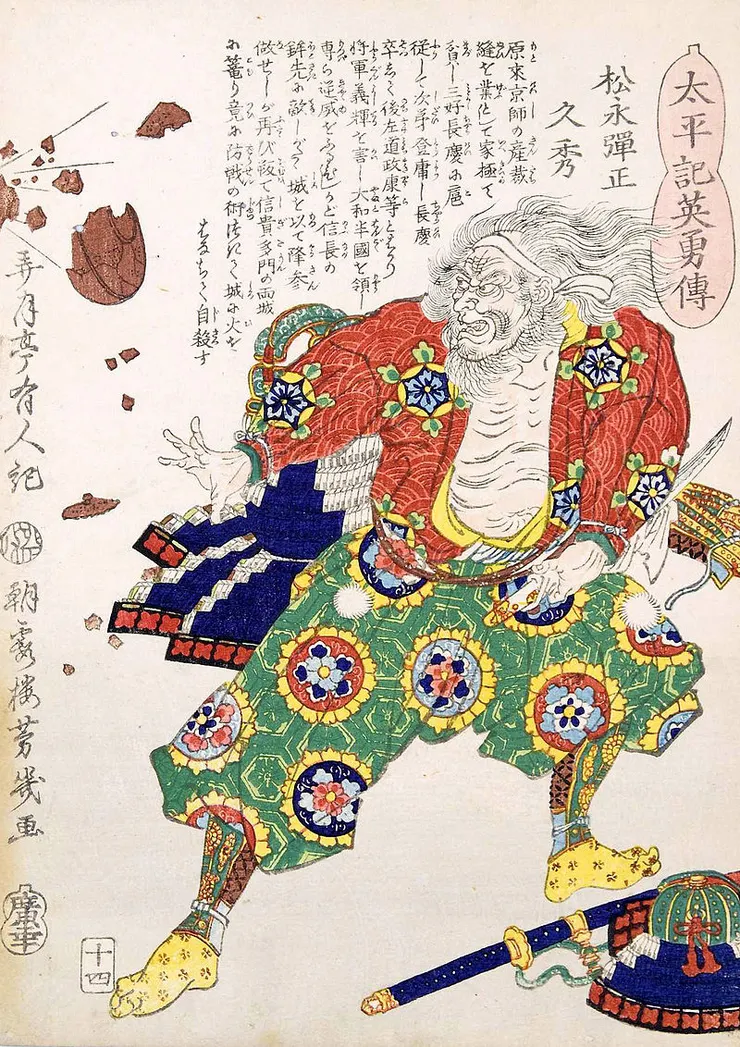 太平記英勇傳
松永彈正
久秀
原來京師の産裁
縫を業として家極て
貧し三好長慶に扈
従して次第登庸し長慶
卒して後左道政康等とはかり
将軍義輝を害し大和半國を領し
専ら逆威をふるひしかど信長の
鉾先に敵しがたく城を以て降参
做せしが再び叛て信貴多門の両城
に篭り竟に防戦の術つきて城に火を
はなちて自殺す
弄月亭有人記
朝霞楼芳幾画
十四